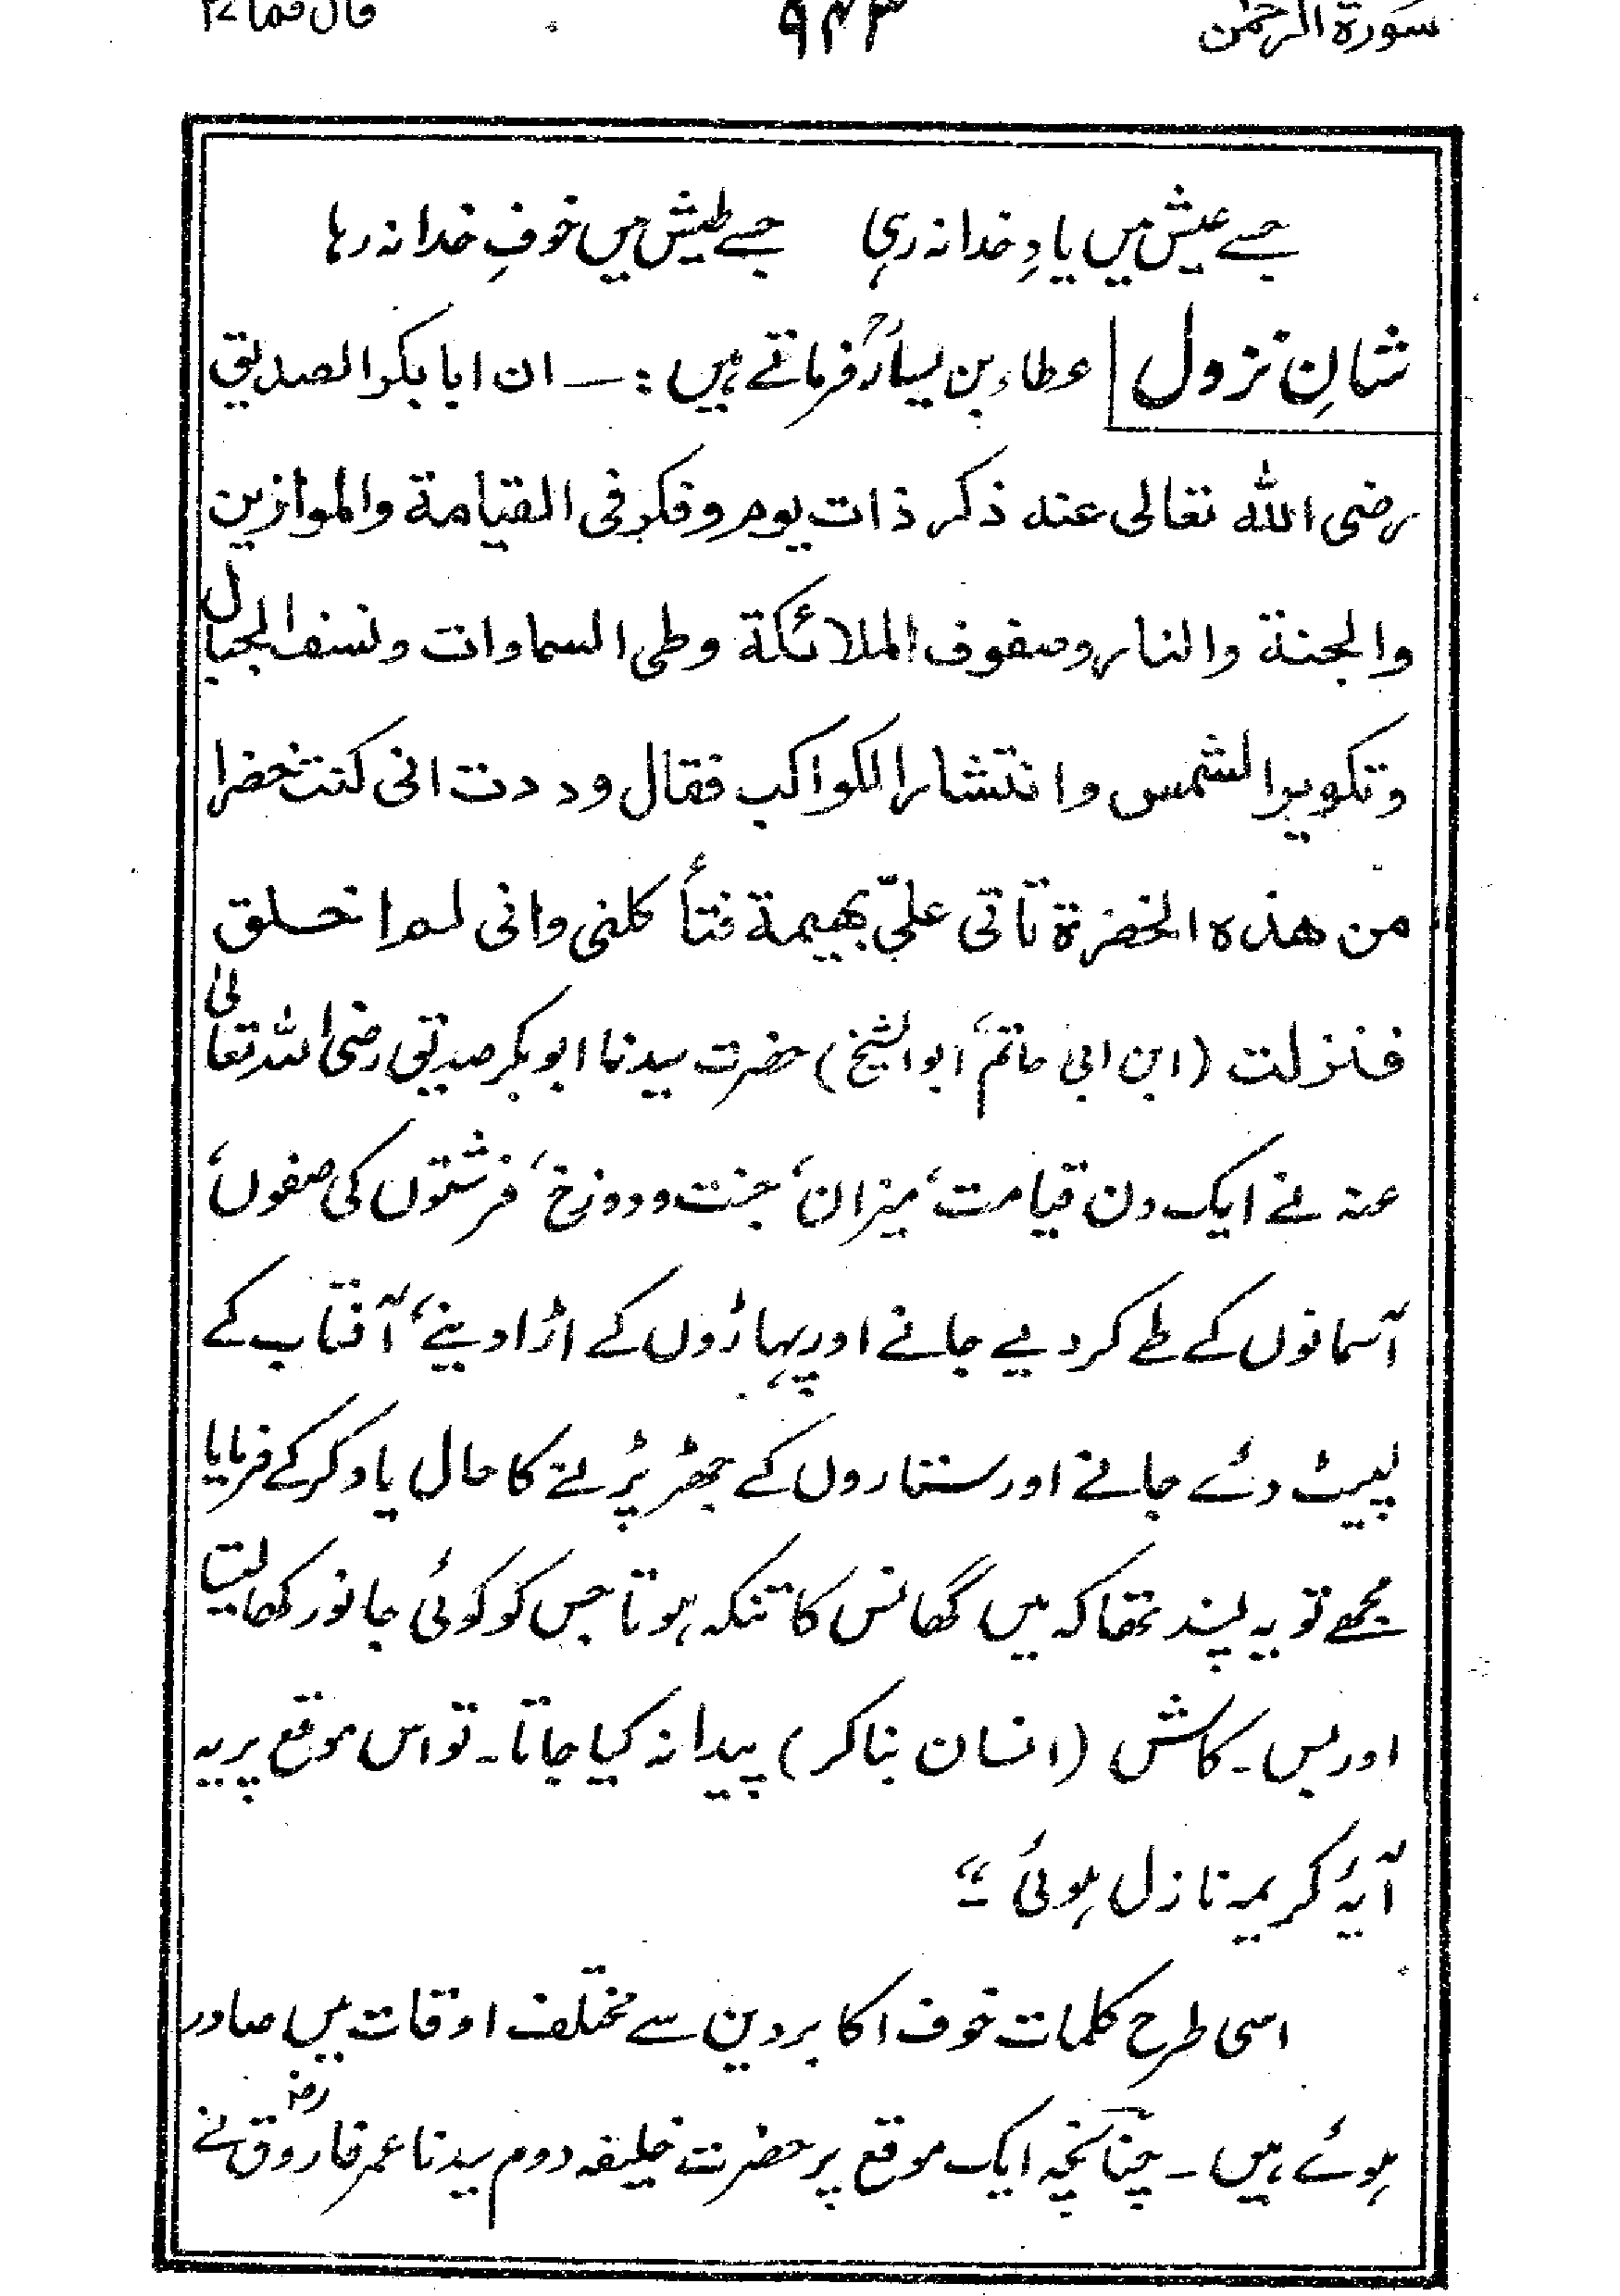 سورة الرحمٰن ۹۴۳ قال فما ۲۷
جسے عیش میں یادِ خدا نہ رہی جسے طیش میں خوفِ خدا نہ رہا
شانِ نزول عطاء بن یسارؒ فرماتے ہیں :ـ ان ابا بکر الصدیق
رضی اللہ تعالی عنہ ذکر ذات یوم و فکر فی القیامة والموازین
والجنة والنار وصفوف الملائکة وطی السماوات ونسف الجبال
وتکویر الشمس وانتشار الکواکب فقال وددت انی کنت خضرا
من هذه الخضرة تأتی علیّ بهیمة فتأکلنی وانی لم اخلق
فنزلت (ابن ابی حاتم، ابوالشیخ) حضرت سیدنا ابوبکر صدیق رضی اللہ تعالیٰ
عنہ نے ایک دن قیامت، میزان، جنت و دوزخ، فرشتوں کی صفوں،
آسمانوں کے طے کر دیے جانے اور پہاڑوں کے اڑا دینے، آفتاب کے
لپیٹ دئے جانے اور ستاروں کے جھڑ پڑنے کا حال یاد کر کے فرمایا
مجھے تو یہ پسند تھا کہ میں گھانس کا تنکہ ہوتا جس کو کوئی جانور کھا لیتا
اور بس۔ کاش (انسان بنا کر) پیدا نہ کیا جاتا۔ تو اس موقع پر یہ
آیۂ کریمہ نازل ہوئی ۔“
اسی طرح کلمات خوف اکابر دین سے مختلف اوقات میں صادر
ہوئے ہیں ۔ چنانچہ ایک موقع پر حضرت خلیفہ دوم سیدنا عمر فاروقؓ نے